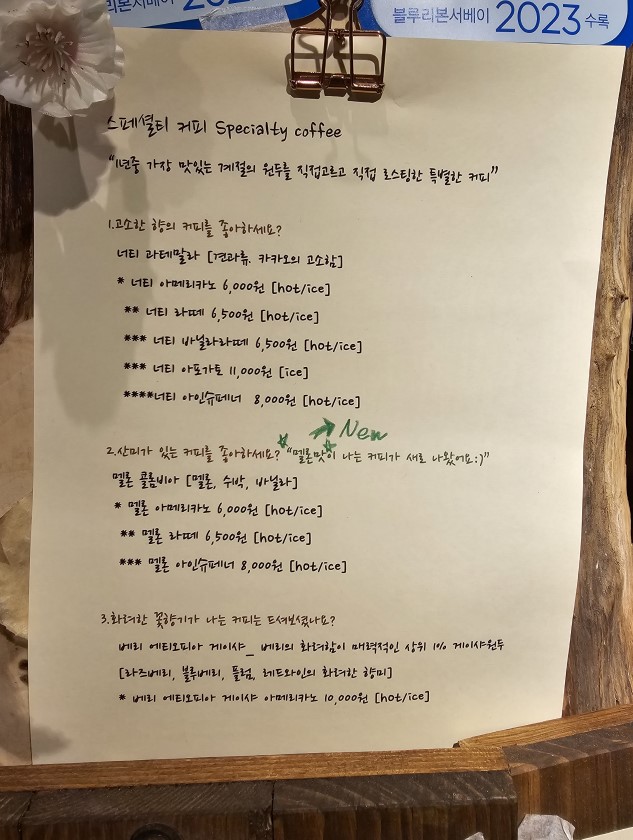 블루리본서베이 2023 수록
스페셜티 커피 Specialty coffee
"1년중 가장 맛있는 계절의 원두를 직접고르고 직접 로스팅한 특별한 커피"
1.고소한 향의 커피를 좋아하세요?
너티 과테말라 [견과류. 카카오의 고소함]
* 너티 아메리카노 6,000원 [hot/ice]
** 너티 라떼 6,500원 [hot/ice]
*** 너티 바닐라라떼 6,500원 [hot/ice]
*** 너티 아포가토 11,000원 [ice]
****너티 아인슈페너 8,000원 [hot/ice]
New
2.산미가 있는 커피를 좋아하세요? "멜론맛이 나는 커피가 새로 나왔어요:)"
멜론 콜롬비아 [멜론, 수박, 바닐라]
* 멜론 아메리카노 6,000원 [hot/ice]
** 멜론 라떼 6,500원 [hot/ice]
*** 멜론 아인슈페너 8,000원 [hot/ice]
3.화려한 꽃향기가 나는 커피는 드셔보셨나요?
베리 에티오피아 게이샤_ 베리의 화려함이 매력적인 상위 1% 게이샤원두
[라즈베리, 블루베리, 플럼, 레드와인의 화려한 향미]
* 베리 에티오피아 게이샤 아메리카노 10,000원 [hot/ice]